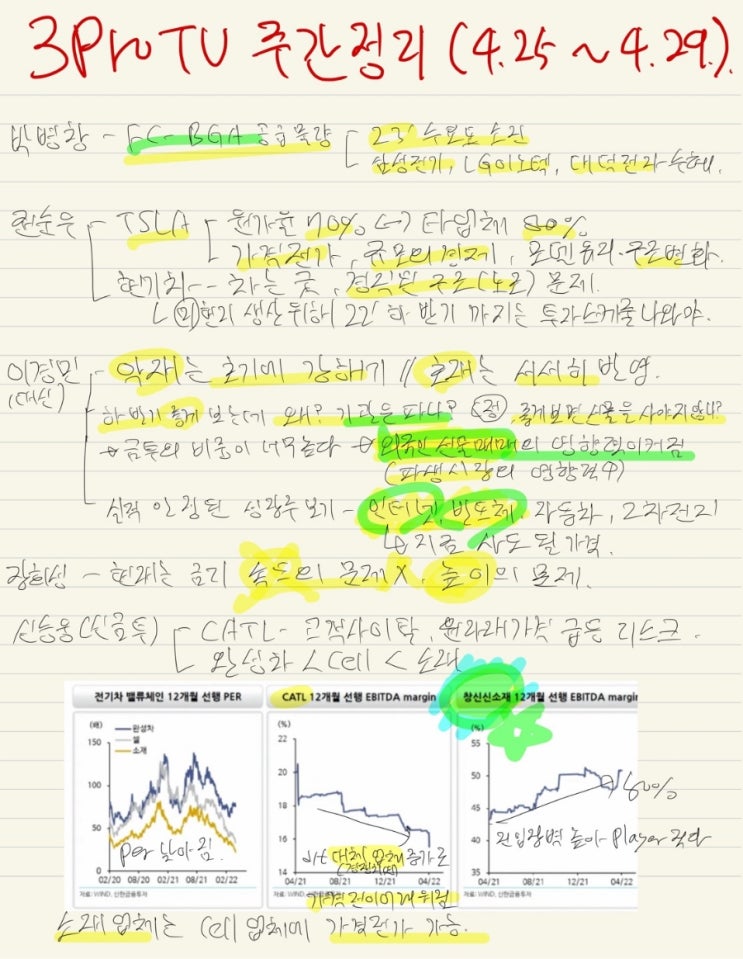 3ProTV 주간정리 (4.25 ~ 4.29.)
박병창 - FC-BGA 공급물량 23' 수요도 소진
삼성전기, LG이노텍, 대덕전자 수혜.
권순우 TSLA 원가율 70% ↔ 타업체 80%
가격전가, 규모의 경제, 구조변화.
현기차 -- 차는 굿, 경직된 구조(노조) 문제.
현지 생산 위해 22' 하반기 까지는 투자스케줄 나와야.
이경민 - 악재는 초기에 강하기 // 호재는 서서히 반영.
(대신)
하반기 좋게 보는데 왜? 기관은 파나? 좋게보면 선물을 사야지 않나?
금투의 비중이 너무높다 → 외국인 선물매매의 영향력이 커짐
(파생시장의 영향력↑)
실적 안정된 성장주 보기 - 인터넷, 반도체, 자동차, 2차전지
지금 사도 될 가격.
장화성 - 현재는 금리 속도의 문제 X, 높이의 문제.
(신금투) CATL - 원자재가격 급등 리스크.
완성차 < Cell < 소재
전기차 밸류체인 12개월 선행 PER
CATL 12개월 선행 EBITDA margin
창신신소재 12개월 선행 EBITDA margin
(배)
(%)
(%)
완성차
셀
소재
150
100
50
0
22
20
18
16
14
55
50
45
40
35
60%
per 낮아짐.
대체 업체 증가로
가격 전이 어개 위험
진입장벽 높아 Player 적다
02/20 08/20 02/21 08/21 02/22
04/21 08/21 12/21 04/22
04/21 08/21 12/21 04/22
자료: WIND, 신한금융투자
자료: WIND, 신한금융투자
자료: WIND, 신한금융투자
소재업체는 Cell 업체에 가격전가 가능.